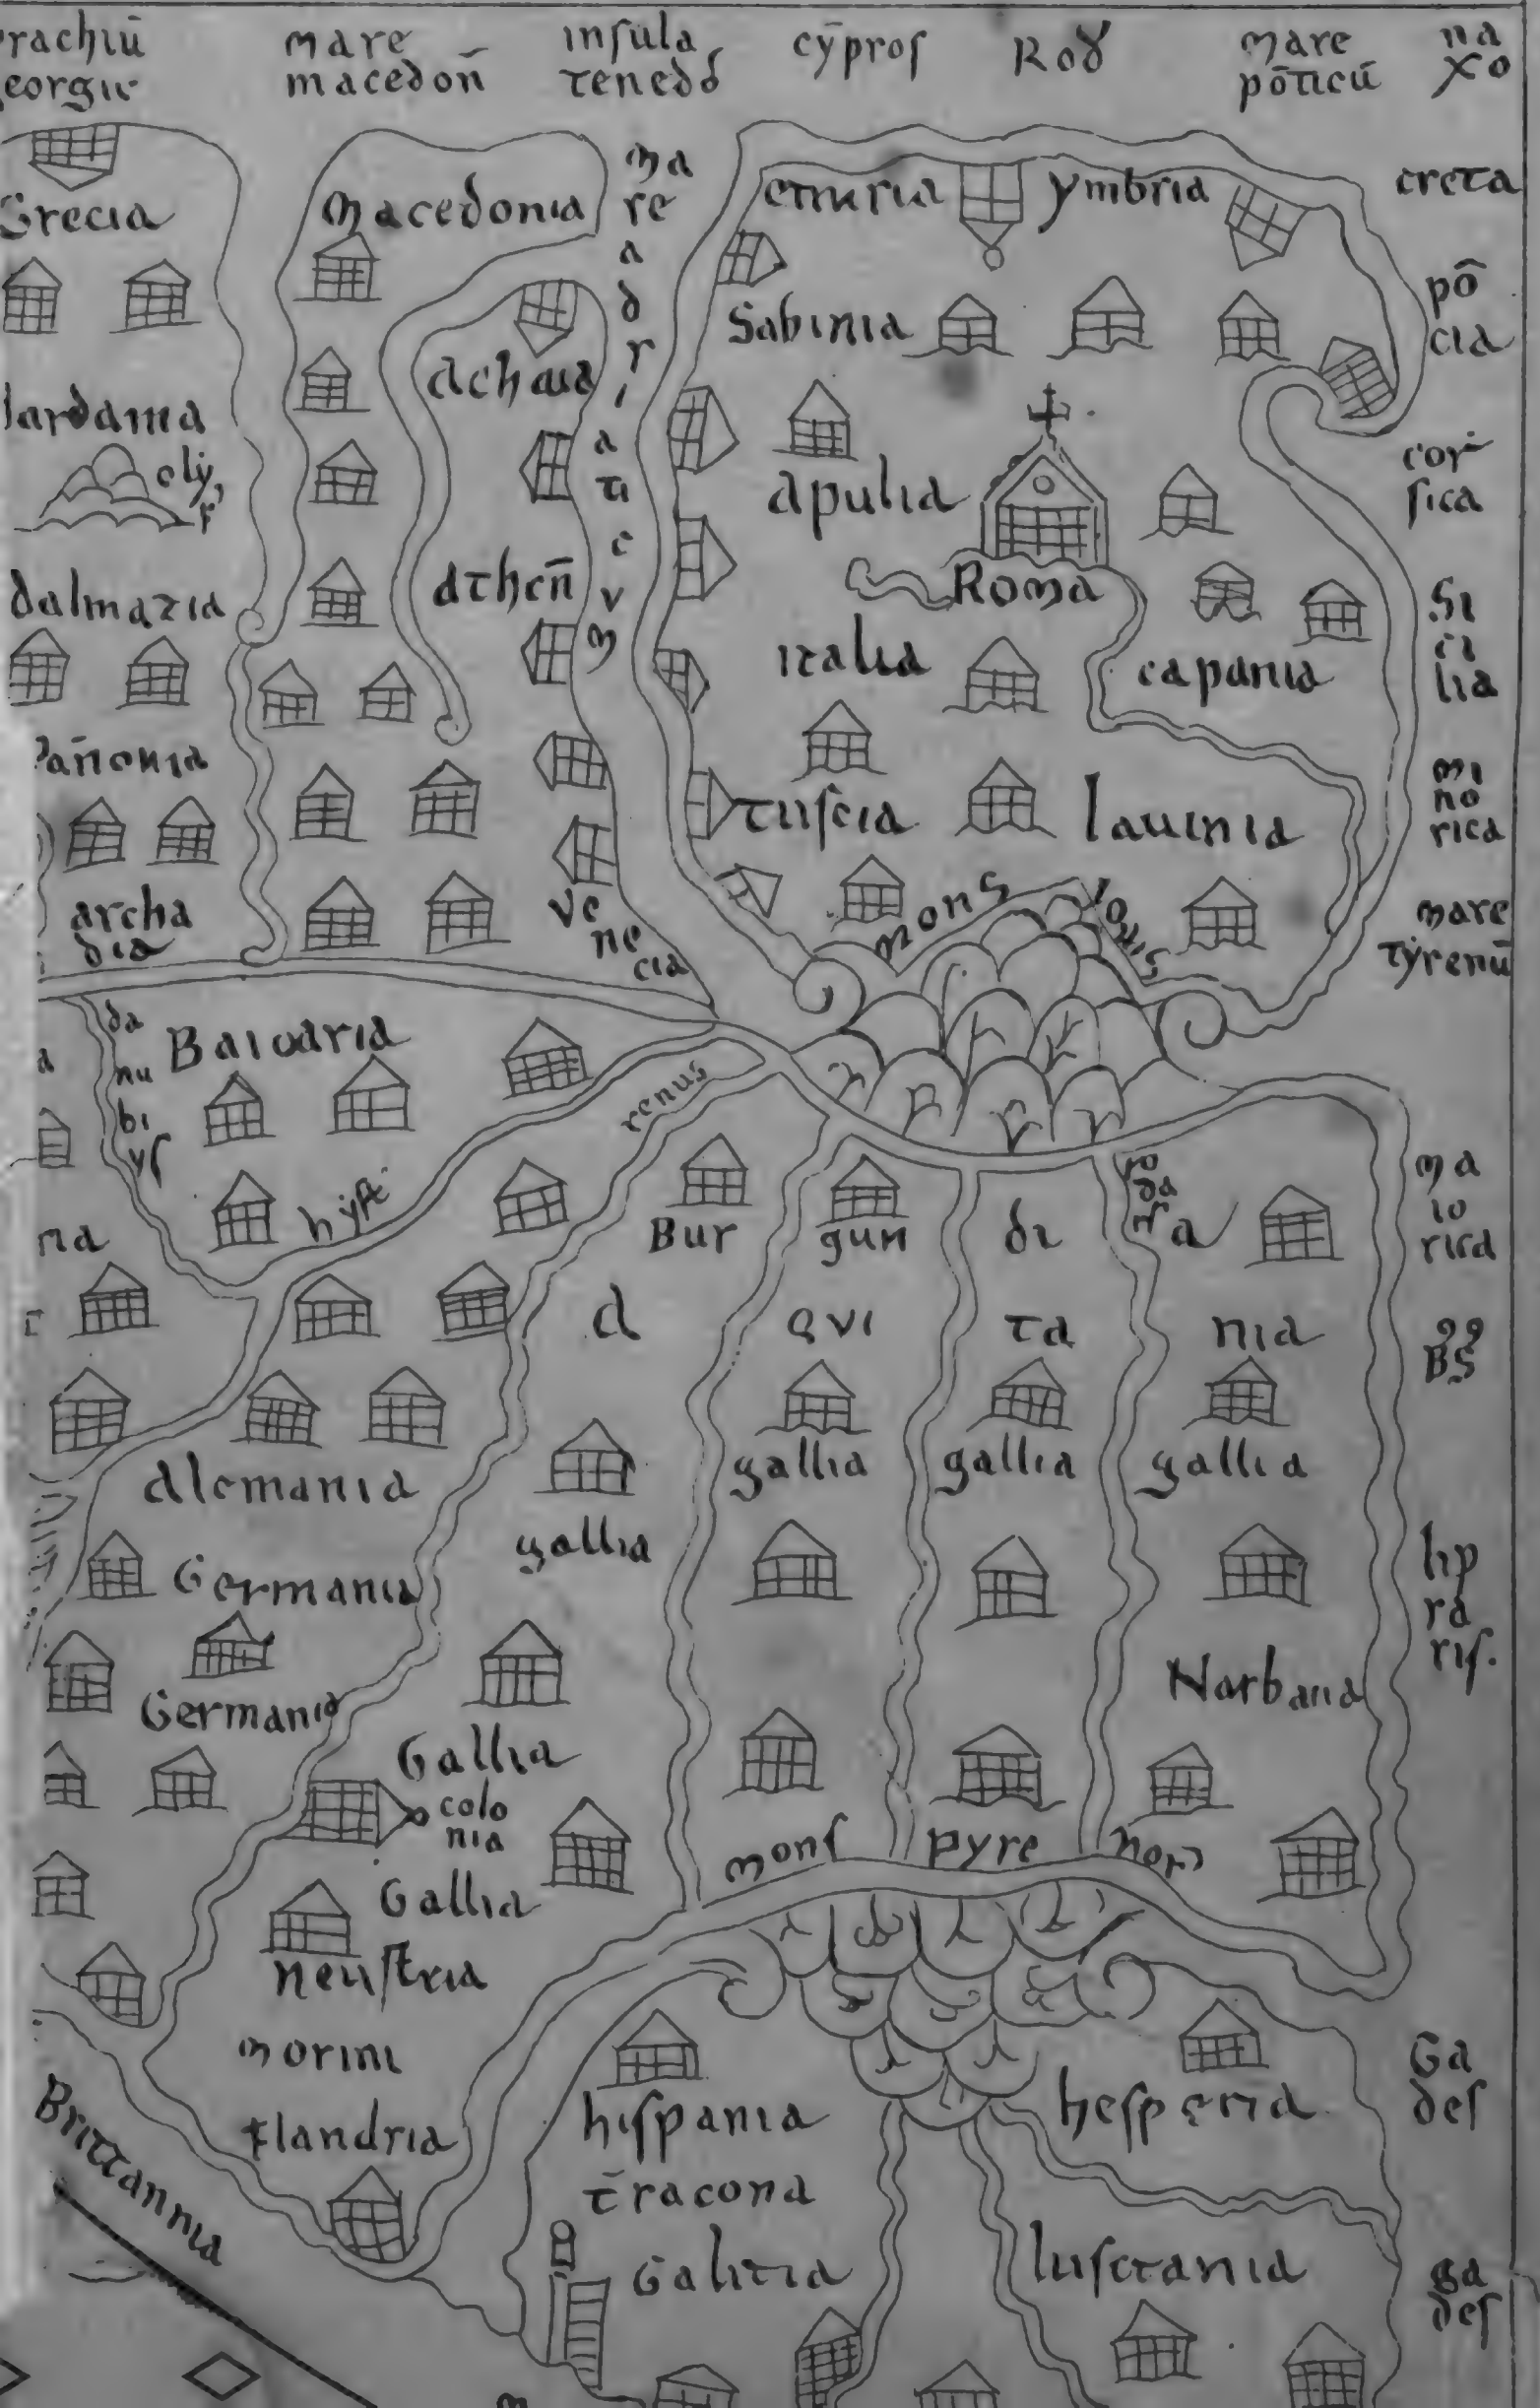 mare
macedon̄
insula
tenedoſ
cȳproſ
Roȣ
mare
pōticū
na
xo
Grecia
macedonia
ma
re
a
d
r
i
a
ti
c
v
m
etruria
ymbria
creta
Sabinia
achaia
pō
cia
dardania
olÿ
apulia
cor
ſica
dalmazia
athen̄
Roma
Si
ci
lia
italia
capania
Pan̄onia
tuſcia
lauinia
mi
no
rica
archa
dia
ve
ne
cia
mons
iovis
mare
tÿrenū
da
nu
bi
yſ
Baioaria
renus
hyſt
Bur
gun
di
a
ro
da
nſ
ma
io
rica
na
a
qvi
ta
nia
BS
alemania
gallia
gallia
gallia
gallia
Germania
lip
ra
riſ.
Germania
Narbana
Gallia
colo
nia
monſ
pyre
nen
Gallia
neuſtria
morini
flandria
Brittannia
hiſpania
heſperia
Ga
deſ
tracona
Galitia
luſitania
ga
deſ